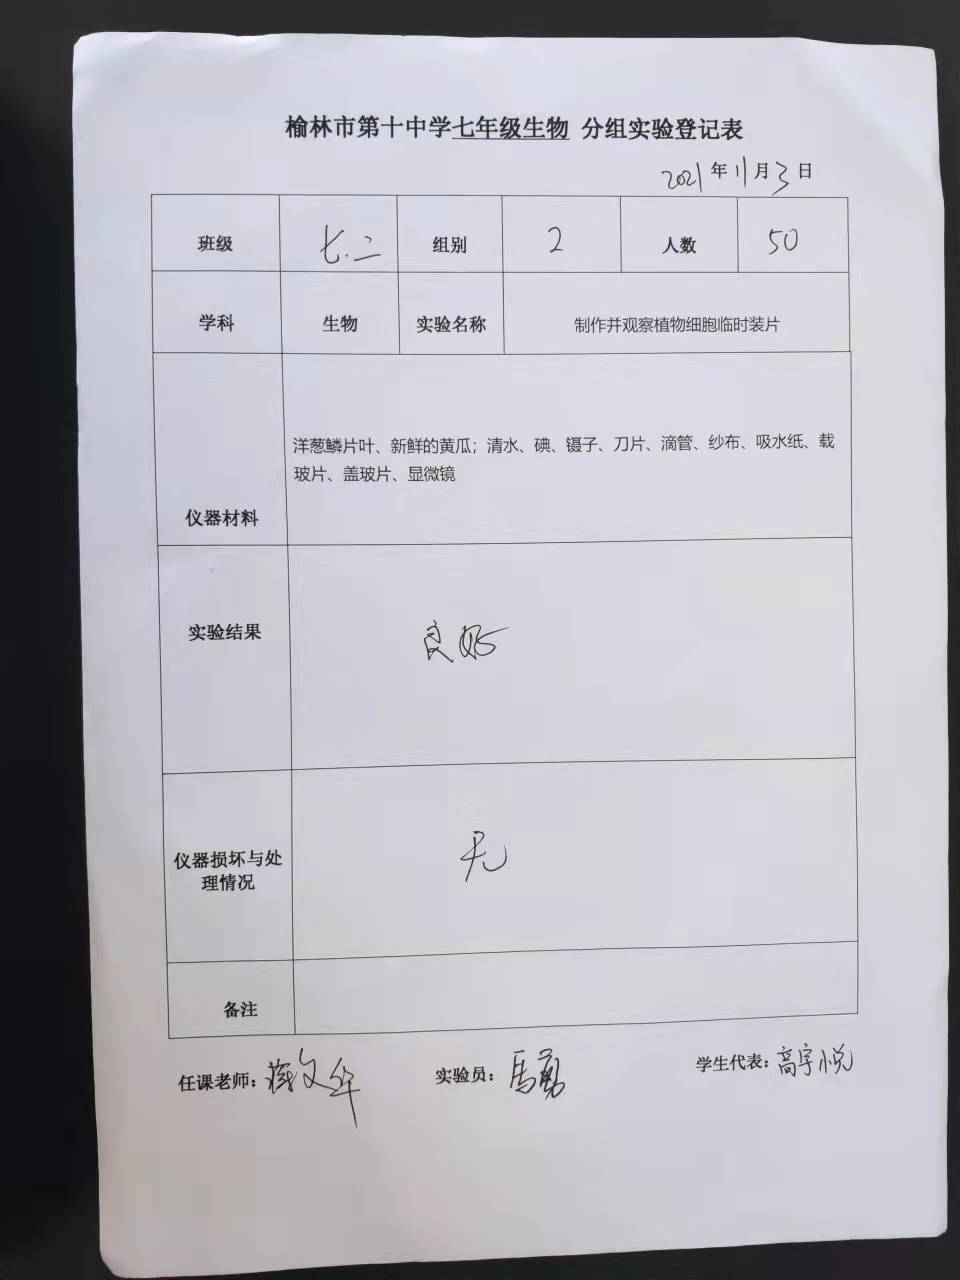 榆林市第十中学七年级生物 分组实验登记表
2021年11月3日
班级 七.二 组别 2 人数 50
学科 生物 实验名称 制作并观察植物细胞临时装片
仪器材料
洋葱鳞片叶、新鲜的黄瓜；清水、碘、镊子、刀片、滴管、纱布、吸水纸、载
玻片、盖玻片、显微镜
实验结果 良好
仪器损坏与处
理情况
无
备注
任课老师： 文华 实验员：马勇 学生代表：高宇悦